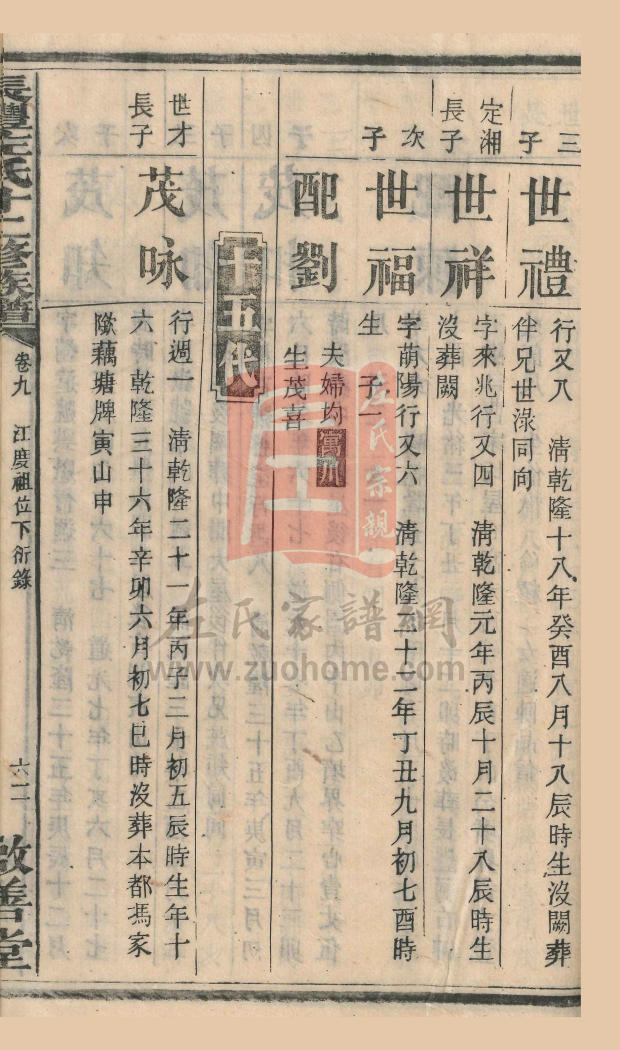 三子
世禮
行又八 清乾隆十八年癸酉八月十八辰時生沒闕葬
伴兄世淥同向
定湘長子
世祥
字來兆行又四 清乾隆元年丙辰十月二十八辰時生
沒葬闕
次子
世福
字萠陽行又六 清乾隆二十二年丁丑九月初七酉時
生 子一
配劉
夫婦均
生茂喜
十五代
世才長子
茂咏
行週一 清乾隆二十一年丙子三月初五辰時生年十
六時 乾隆三十六年辛卯六月初七巳時沒葬本都馮家
隙藕塘牌寅山申
長豐左氏十二修族譜
卷九 江度祖位下衍錄
六二
敦善堂
左氏宗親
左氏家譜網
www.zuohome.com